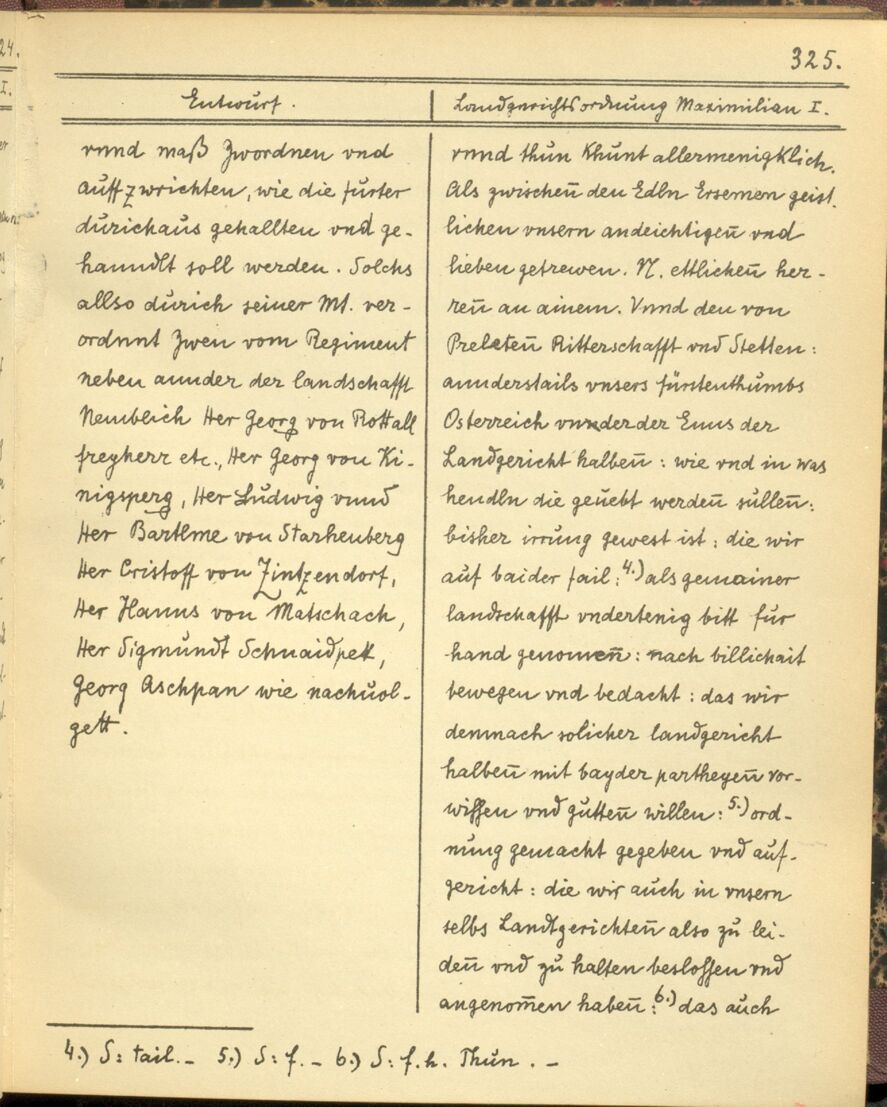 325.
Entwurf.
vnnd maß Zwordnen vnd
auffzwrichten, wie die furter
durichaus gehallten vnd ge-
hanndlt soll werden. Solchs
allso durich seiner Mt. ver-
ordnnt Zwen vom Regiment
neben annder der landschafft
Nemblich Her Georg von Rottall
freyherr etc., Her Georg von Ki-
nigsperg, Her Ludwig vnnd
Her Bartlme von Starhenberg
Her Cristoff von Zintzendorf,
Her Hanns von Matschach,
Her Sigmundt Schnaidpek,
Georg Aschpan wie nachuol-
gett.
Landgerichtsordnung Maximilian I.
vnnd thun Khunt allermenigklich.
Als zwischen̄ den Edln Ersemen geist
lichen vnsern andeichtigen̄ vnd
lieben getrewen. N. ettlichen̄ her-
ren̄ an ainem. Vnnd den von
Preleten̄ Ritterschafft vnd Stetten:
annderstails vnsers fürstenthumbs
Osterreich vnnderder Enns der
Landgericht halben̄: wie vnd in was
hendln die geuebt werden̄ sullen̄:
bisher irrung gewest ist: die wir
auf baider fail:4.) als gemainer
landschafft vndertenig bitt fur
hand genomen̄: nach billichait
bewegen vnd bedacht: das wir
demnach solicher landgericht
halben̄ mit bayder partheyen̄ vor-
wissen vnd gutten̄ willen:5.) ord-
nung gemacht gegeben vnd auf-
gericht: die wir auch in vnsern
selbs Landtgerichten̄ also zu lei-
den̄ vnd zu halten beslossen vnd
angenom̄en haben̄:6.) das auch
4.) S: tail. - 5.) S: f. - 6.) S: f. h. Thun. -